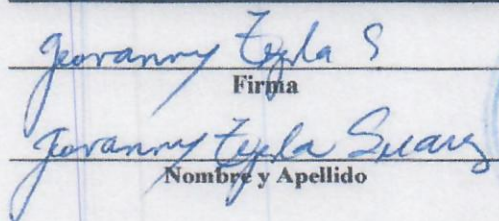 Geovanny Tejda S
Firma
Geovanny Tejeda Suarez
Nombre y Apellido